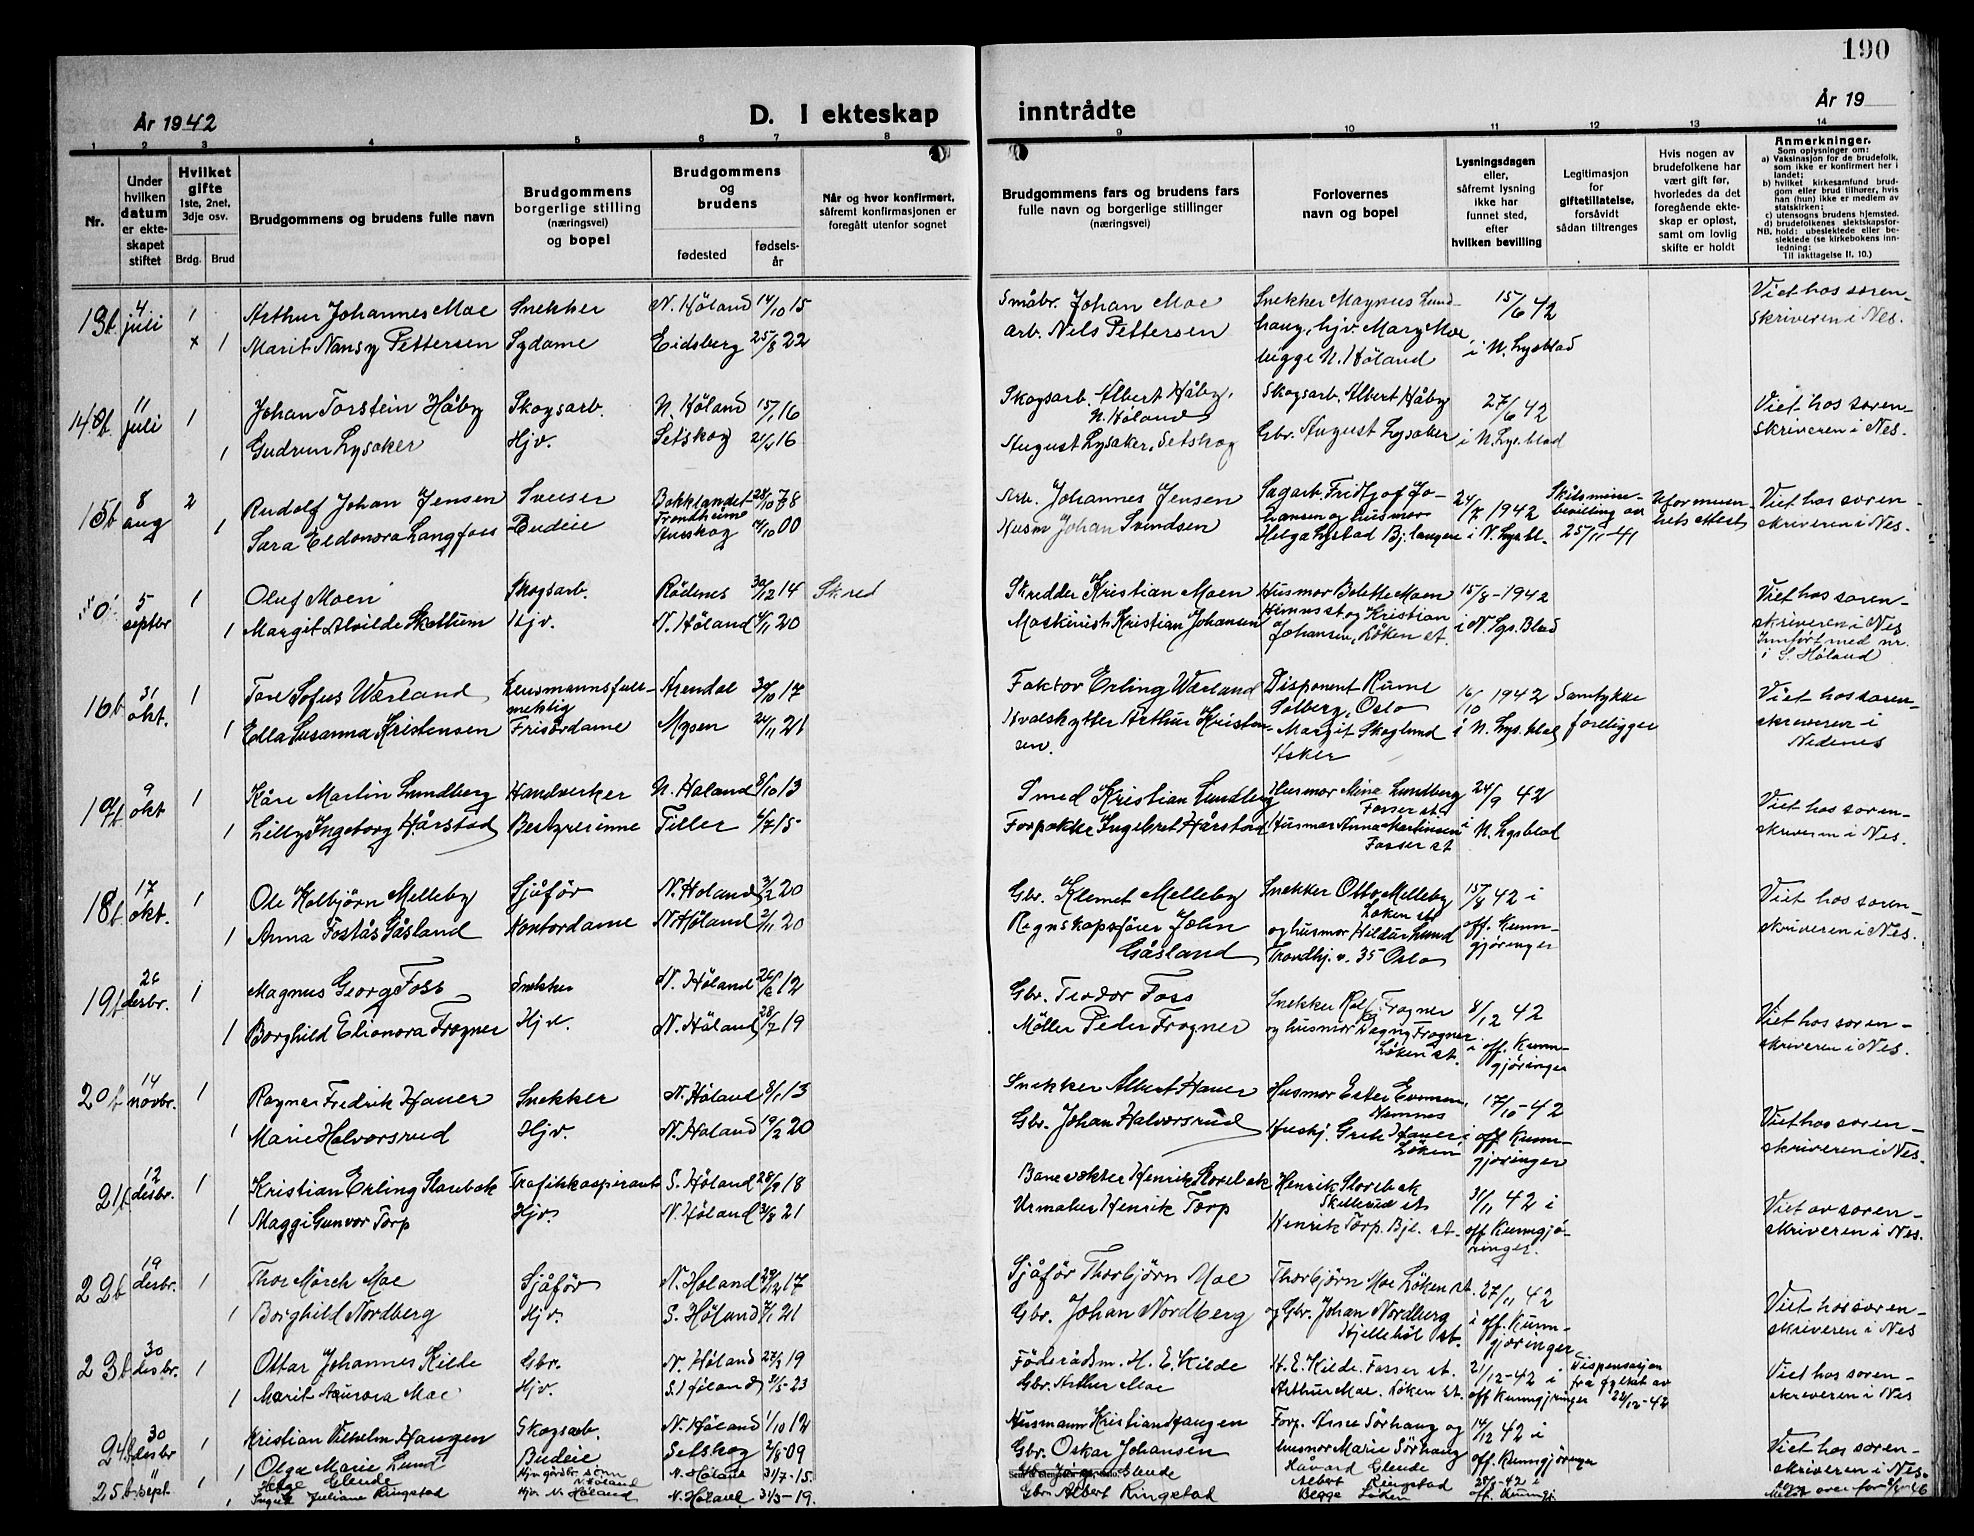 190
År 1942
D. I ekteskap
inntrådte
År 19
1 2 3 4 5 6 7 8 9 10 11 12 13 14
Nr.
Under hvilken datum er ekteskapet stiftet
Hvilket gifte 1ste, 2net, 3dje osv.
Brdg. Brud
Brudgommens og brudens fulle navn
Brudgommens borgerlige stilling (næringsvei) og bopel
Brudgommens og brudens
fødested
fødselsår
Når og hvor konfirmert, såfremt konfirmasjonen er foregått utenfor sognet
Brudgommens fars og brudens fars fulle navn og borgerlige stillinger (næringsvei)
Forlovernes navn og bopel
Lysningsdagen eller, såfremt lysning ikke har funnet sted, efter hvilken bevilling
Legitimasjon for giftetillatelse, forsåvidt sådan tiltrenges
Hvis nogen av brudefolkene har vært gift før, hvorledes da det foregående ekteskap er opløst, samt om lovlig skifte er holdt
Anmerkninger.
Som oplysninger om:
a) Vaksinasjon for de brudefolk, som ikke er konfirmert her i landet;
b) hvilket kirkesamfund brudgom eller brud tilhører, hvis han (hun) ikke er medlem av statskirken;
c) utensogns brudens hjemsted.
d) brudefolkenes slektskapsforhold: ubeslektede eller beslektede (se kirkebokens innledning:
NB. Til iakttagelse II. 10.)
13b 4 juli 1 Arthur Johannes Moe Snekker N. Høland 14/10 15 Småbr. Johan Moe Snekker Magnus Lund- 15/6 42 Viet hos soren-
1 Marit Nansy Pettersen Sydame Eidsberg 25/8 22 arb. Nils Pettersen haug, hjv. Mary Moe i N. Lysblad skriveren i Nes.
begge N. Høland
14b 11 juli 1 Johan Torstein Håby Skogsarb. N. Høland 15/1 16 Skogsarb. Albert Håby, N. Høland Skogsarb. Albert Håby 27/6 42 Viet hos soren-
1 Gudrun Lysaker Hjv. Setskog 21/4 16 August Lysaker, Setskog Gbr. August Lysaker i N. Lys.blad skriveren i Nes.
15b 8 aug 2 Rudolf Johan Jensen Sveiser Bakklandet Trondheim 28/10 78 Arb. Johannes Jensen Sagarb. Fridtjof Jo- 24/7 1942 Viet hos soren-
1 Sara Eldonora Langfoss Budeie Aurskog 4/10 00 Husm Johan Svindsen hansen og husmor i N. Lysbl. 25/11-41 skriveren i Nes.
5 septbr 1 Oluf Moen Skogsarb. Rödenes 30/12 14 Skred Skredder Kristian Moen Husmor Bolette Moen 15/8-1942 Viet hos soren-
1 Margit Alvilde Skattum Hjv. N. Høland 4/11 20 Maskinist Kristian Johansen Hemnes st og Kristian i N. Lys. Blad skriveren i Nes
Johansen, Løken st. Innført med nr. i S. Høland
16b 31 okt. 1 Tore Sofus Wærland Lensmannsfull-mektig Arendal 30/10 17 Faktor Erling Wærland Disponent Rune 16/10 1942 Samtykke Viet hos soren-
1 Ella Susanna Kristensen Frisördame Mysen 24/11 21 Hvalskytter Arthur Kristen- Solberg, Oslo i N. Lys.blad foreligger skriveren i
sen. Margit Skoglund Asker Nedenes
17b 9 okt 1 Kåre Martin Lundberg Handverker N. Høland 8/10 13 Smed Kristian Lundberg Husmor Mina Lundberg Fosser st 24/9 42 Viet hos soren-
1 Lilly Ingeborg Hårstad Bestyrerinne Tiller 6/7 15 Forpakter Ingebret Hårstad Husmor Anna Martinsen Fosser st i N. Lysblad skriveren i Nes.
18b 17 okt. 1 Ole Kolbjørn Melleby Sjåfør N. Høland 3/2 20 Gbr. Klemet Melleby Snekker Otto Melleby Løken st 15/8 42 i Viet hos soren-
1 Anna Fostås Gåsland Kontordame N. Høland 2/11 20 Regnskapsfører John Gåsland og husmor Hildur Lund Trondhj. v. 35 Oslo off. Kunn-gjøringer skriveren i Nes.
19b 26 desbr. 1 Magnus Georg Foss Snekker N. Høland 26/6 12 Gbr. Teodor Foss Snekker Rolf Frogner 8/12 42 Viet hos soren-
1 Borghild Elionora Frogner Hjv. N. Høland 28/7 19 Møller Peder Frogner og husmor Dagny Frogner Løken st. i off. Kunn-gjøringer skriveren i Nes.
20b 14 novbr. 1 Ragnar Fredrik Haneer Snekker N. Høland 8/1 13 Snekker Albert Haner Husmor Ester Evensen, Hemnes 17/10-42 Viet hos soren-
1 Marie Halvorsrud Hjv. N. Høland 19/2 20 Gbr. Johan Halvorsrud Hushj. Grete Haner Løken i off Kunn-gjøringer skriveren i Nes.
21b 12 desbr. 1 Kristian Erling Slorebek Trafikkaspirant S. Høland 28/9 18 Banevokter Henrik Slorebek Henrik Slorebak Skillerud st 31/11 42 i Viet av soren-
1 Maggi Gunvor Torp Hjv. N. Høland 31/8 21 Urmaker Henrik Torp Henrik Torp. Bjl. st. off Kunngjø-ringer. skriveren i Nes.
22b 19 desbr. 1 Thor Mörch Moe Sjåför N. Høland 29/12 17 Sjåför Thorbjørn Moe Thorbjørn Moe Løken st. 27/11 42 Viet hos soren-
1 Borghild Nordberg Hjv. S. Høland 7/1 21 Gbr. Johan Nordberg og Gbr. Johan Nordberg Hjellebøl st. i off. Kunn-gjøringer skriveren i Nes
23b 30 desbr. 1 Ottar Johannes Kilde Gbr. N. Høland 27/3 19 Föderådsm. H. E. Kilde H. E. Kilde. Fosser st. 21/12-42 i Dispensasjon Viet hos soren-
1 Marit Aurora Moe Hjv. S. Høland 31/5-23 Gbr. Arthur Moe Arthur Moe. Løken st. off Kunngjøringer fra fylket av 22/12-42 skriveren i Nes
24b 30 desbr 1 Kristian Vilhelm Haugen Skogsarb. N. Høland 1/10 12 Husmann Kristian Haugen Forp. Arne Sörhaug og 14/12 42 i Viet hos soren-
1 Olga Marie Lund Budeie Setskog 2/8-09 Gbr. Oskar Johansen husmor Marie Sörhaug off. Kunngjøringer skriveren i Nes.
25b sept 1 Helge Glende N. Høland 31/7-15 Glende Håvard Glende 28/8-42
1 Juliane Ringstad Hjv. N. Høland N. Høland 31/3-19. Gbr. Albert Ringstad Albert Ringstad Begge Løken off. Kunngj.